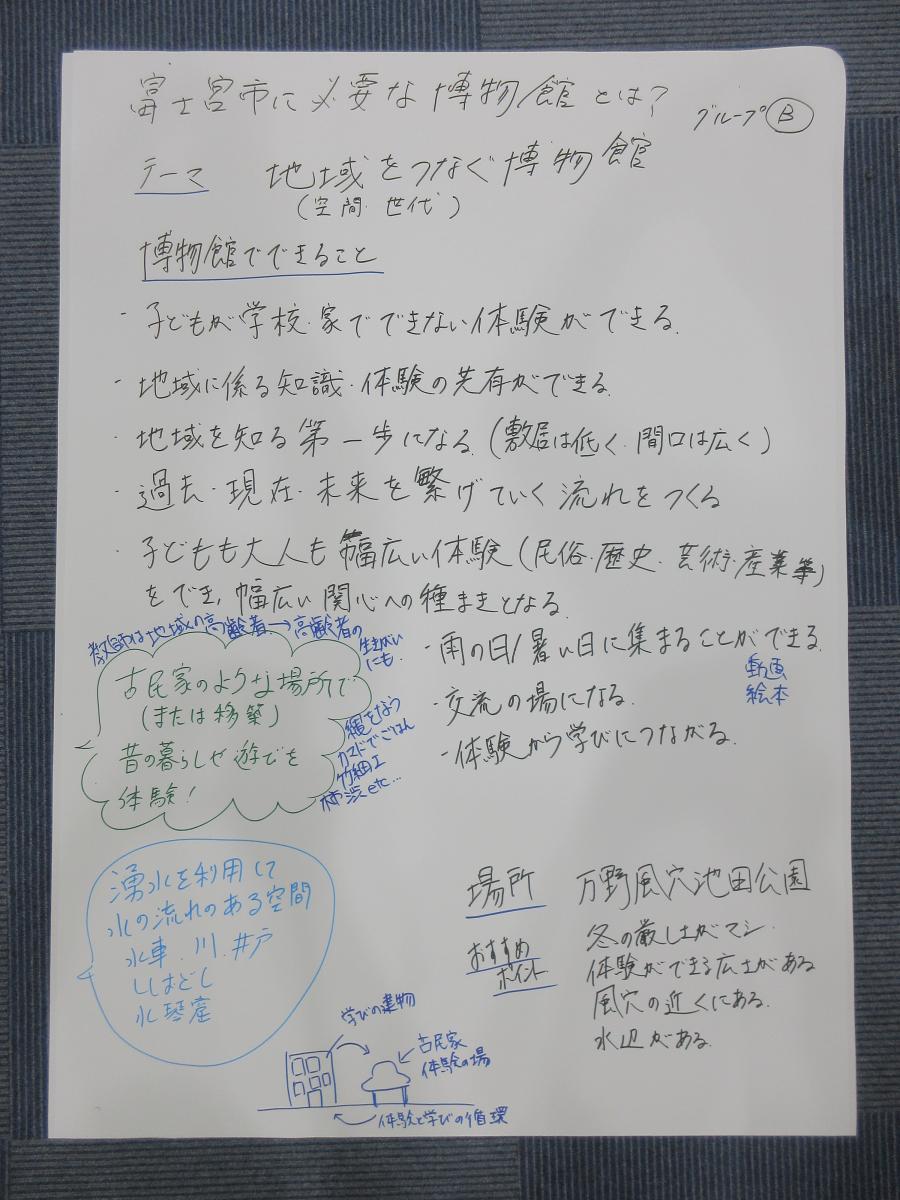 富士宮市に必要な博物館とは?
グループ Ⓑ
テーマ 地域をつなぐ博物館
(空間・世代)
博物館でできること
・子どもが学校・家でできない体験ができる.
・地域に係る知識・体験の共有ができる
・地域を知る第一歩になる.(敷居は低く、間口は広く)
・過去・現在・未来を繋げていく流れをつくる
・子どもも大人も幅広い体験(民俗・歴史・芸術・産業等)
をでき、幅広い関心への種まきとなる.
・雨の日/暑い日に集まることができる.
動画
絵本
・交流の場になる.
・体験から学びにつながる.
教師は地域の高齢者→高齢者の
生きがい
にも.
古民家のような場所で
(または移築)
昔の暮らしや遊びを
体験!
縄をなう
カマドでごはん
竹細工
柿渋etc...
湧水を利用して
水の流れのある空間
水車、川、井戸
ししおどし
水琴窟
場所 万野風穴池田公園
おすすめ
ポイント
冬の厳しさがマシ.
体験ができる広さがある
風穴の近くにある.
水辺がある.
学びの建物
古民家
体験の場
体験と学びの循環